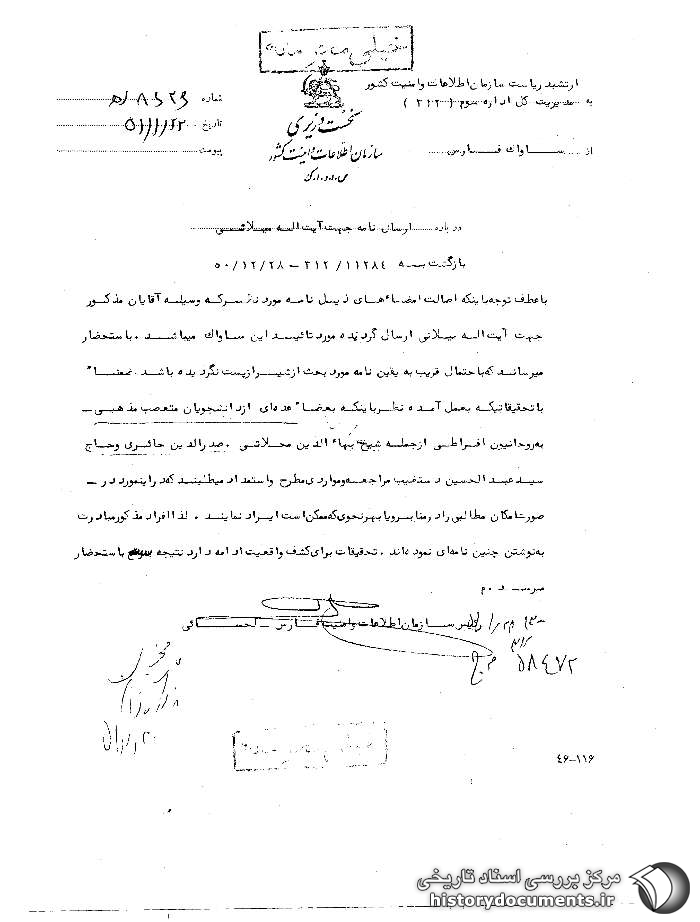 خیلی محرمانه
ارتشبد ریاست سازمان اطلاعات و امنیت کشور
به مدیریت کل اداره سوم (۳۱۲)
از ساواک فارس
نخست وزیری
سازمان اطلاعات و امنیت کشور
س.ا.و.ا.ک
شماره
تاریخ ۵۱/۱/۲۲
پیوست
درباره ارسال نامه جهت آیت اله میلانی
بازگشت به ۳۱۲/۱۱۲۸۴ – ۵۰/۱۲/۲۸
باعطف توجه باینکه اصالت امضاءهای ذیل نامه مورد نظر که وسیله آقایان مذکور
جهت آیت اله میلانی ارسال گردیده مورد تائید این ساواک میباشد . باستحضار
میرساند که باحتمال قریب به یقین نامه مورد بحث از شیراز پست نگردیده باشد . ضمنا"
با تحقیقاتیکه بعمل آمده نظر باینکه بعضا" عده‌ای از دانشجویان متعصب مذهبی –
به روحانیون افراطی از جمله شیخ بهاء الدین محلاتی . صدرالدین حائری وحاج
سید عبد الحسین دستغیب مراجعه ومواردی مطرح واستمداد میطلبند که در اینمورد در –
صورت امکان مطالبی را در منابر ویا بهر نحوی که ممکن است ایراد نمایند . لذا افراد مذکور مبادرت
به نوشتن چنین نامه‌ای نموده‌اند . تحقیقات برای کشف واقعیت ادامه دارد نتیجه باستحضار
میرسد . م
رئیس سازمان اطلاعات و امنیت فارس –
۵۸۴۷۲
۴۶–۱۱۶
مرکز بررسی اسناد تاریخی
historydocuments.ir